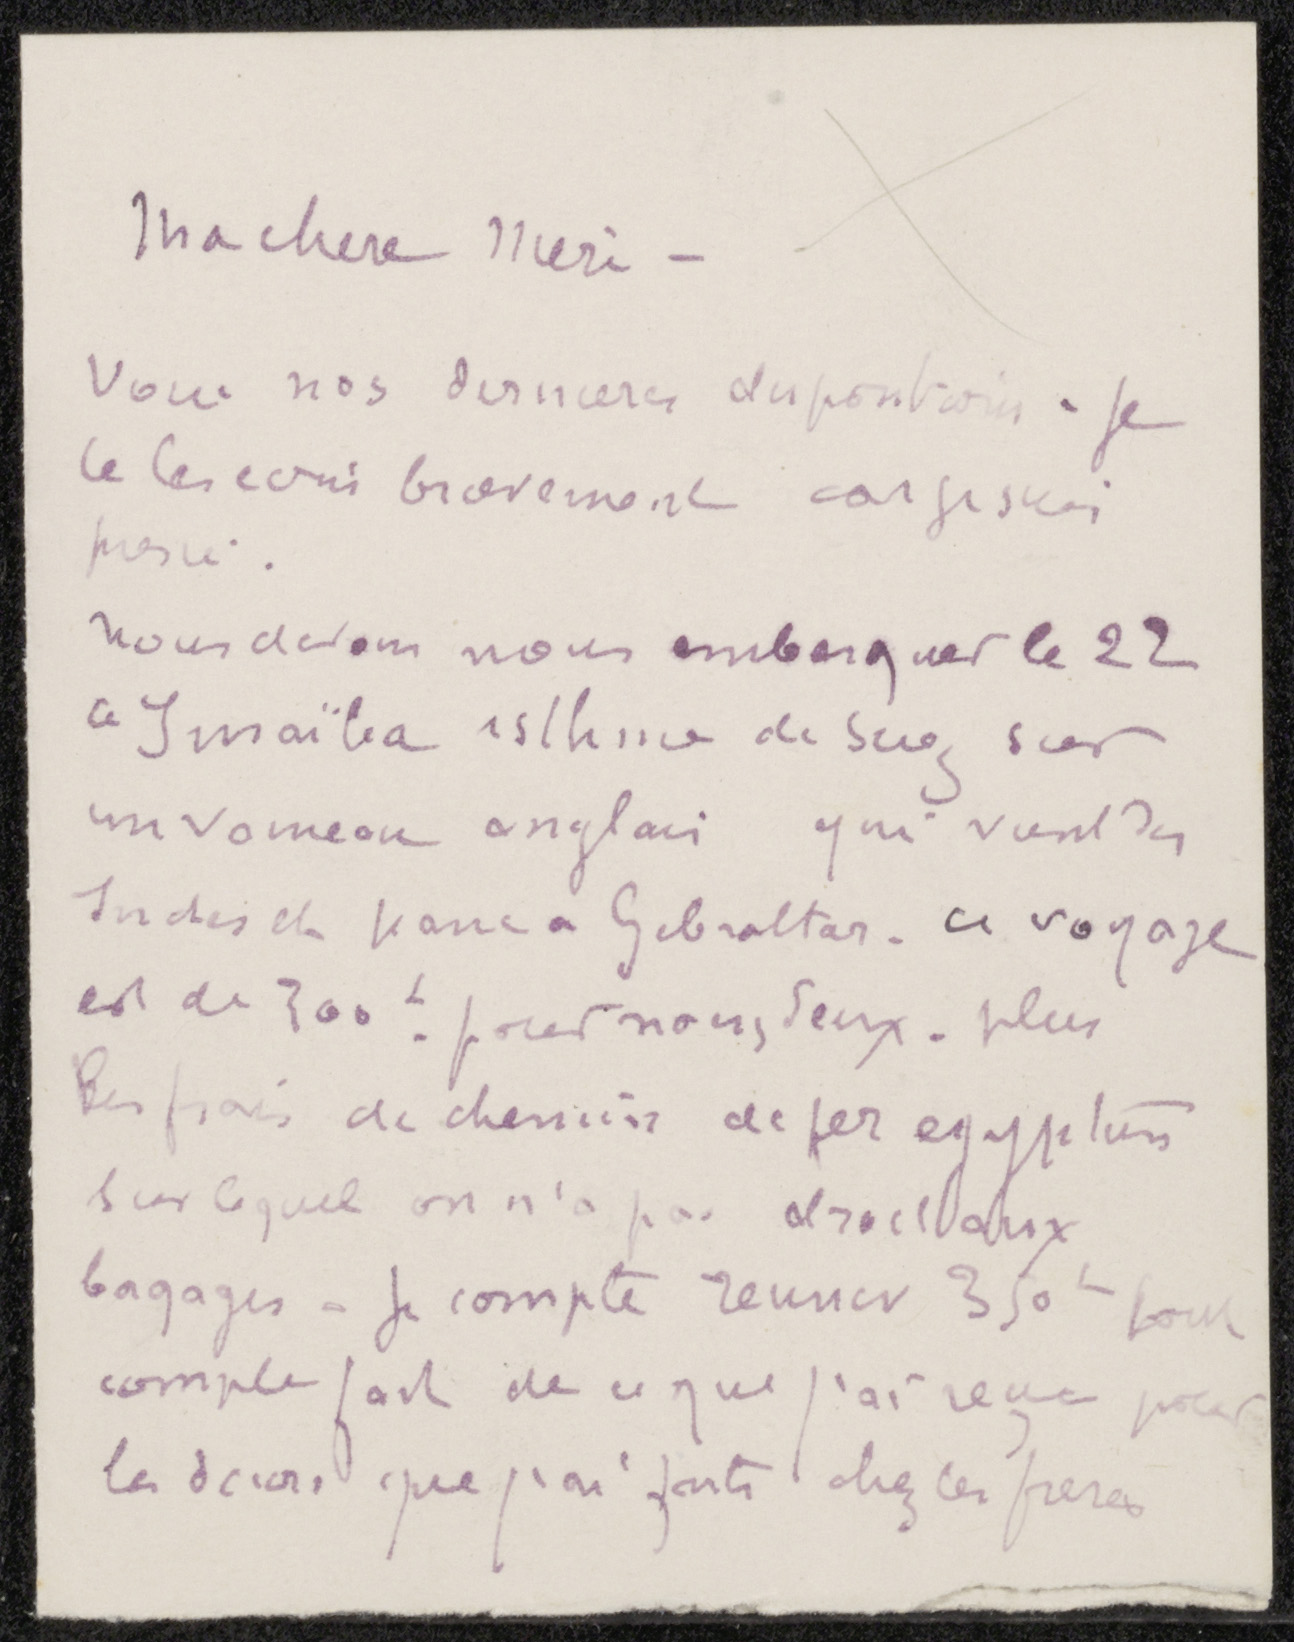 Ma chere Meri -
Voici nos dernieres dispositions - Je
te les ecris brievement car je suis
presse.
Nous devons nous embarquer le 22
a Ismaïlia isthme de Suez sur
un vaisseau anglais qui vient des
Indes et passe a Gibraltar. ce voyage
est de 300 L. pour nous deux. plus
les frais de chemin de fer egyptien
sur lequel on n'a pas droit aux
bagages - Je compte reunir 350 L tout
compte fait de ce que j'ai reçu pour
les decors que j'ai faits chez les freres